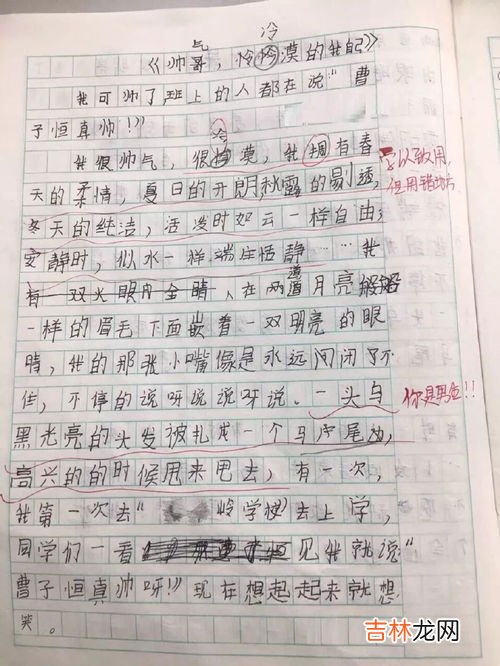 气 冷
《帅哥,怜怜漠的我自己》
我可帅了班上的人都在说“曹
子恒真帅!》
冷
我很帅气,很漠,我拥有春
学以致用,
天的柔情,夏日的开朗,秋露的剔透,
但用错地方
冬天的纯洁,活泼时如云一样自由;
安静时,似水一样端庄恬静……我
有一双火眼内金睛,在两道月亮
一样的眉毛下面嵌着一双明亮的眼
睛,我的那张小嘴像是永远闭不
住,不停的说呀说说呀说。一头乌
你是男生!!
黑光亮的头发被扎成一个马尾,
高兴的的时候甩来甩去,有一次,
我第一次去“岭学校”去上学,
同学们一看见我就说“
曹子恒真帅呀!》现在想起起来就想
笑。
吉林龙网